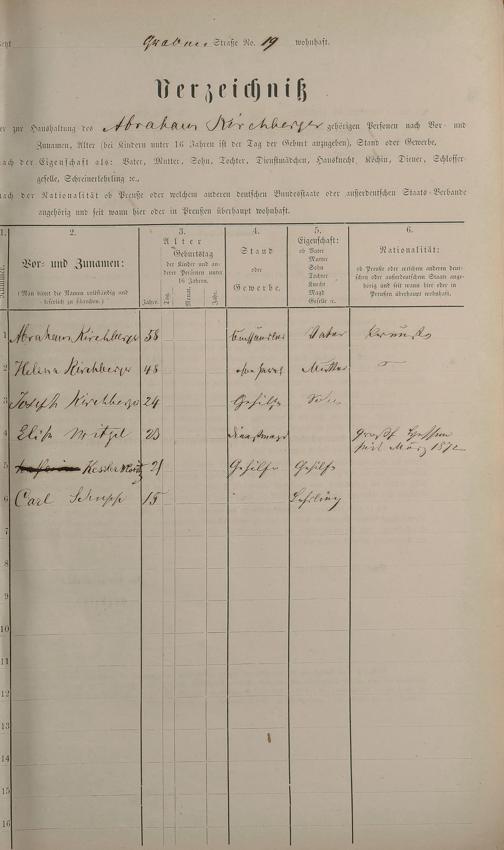 Graben Straße No. 19 wohnhaft.
Verzeichniß
der zur Haushaltung des Abraham Kirchberger gehörigen Personen nach Vor- und
Zunamen, Alter (bei Kindern unter 16 Jahren ist der Tag der Geburt anzugeben), Stand oder Gewerbe,
nach der Eigenschaft als: Vater, Mutter, Sohn, Tochter, Dienstmädchen, Hausknecht, Köchin, Diener, Schlosser-
geselle, Schreinerlehrling ꝛc.,
nach der Nationalität ob Preuße oder welchem anderen deutschen Bundesstaate oder außerdeutschen Staats-Verbande
angehörig und seit wann hier oder in Preußen überhaupt wohnhaft.
1. 2. 3. 4. 5. 6.
Nummer.
Vor- und Zunamen:
(Man bittet die Namen vollständig und leserlich zu schreiben.)
Alter
Jahre.
Geburtstag
der Kinder und anderer Personen unter 16 Jahren.
Tag. Monat. Jahr.
Stand
oder
Gewerbe.
Eigenschaft:
ob Vater
Mutter
Sohn
Tochter
Knecht
Magd
Geselle ꝛc.
Nationalität:
ob Preuße oder welchem anderen deutschen oder außerdeutschen Staat angehörig und seit wann hier oder in Preußen wohnhaft.
1 Abraham Kirchberger 58 Vater
2 Helena Kirchberger 48 Mutter
3 Joseph Kirchberger 24 Gehilfe Sohn
4 Elise Witzel 23 Dienstmagd Großh Hessen
seit März 1872
5 Kessler 21 Gehilfe Gehilfe
6 Carl Schupp 15 Lehrling
7
8
9
10
11
12
13
14
15
16